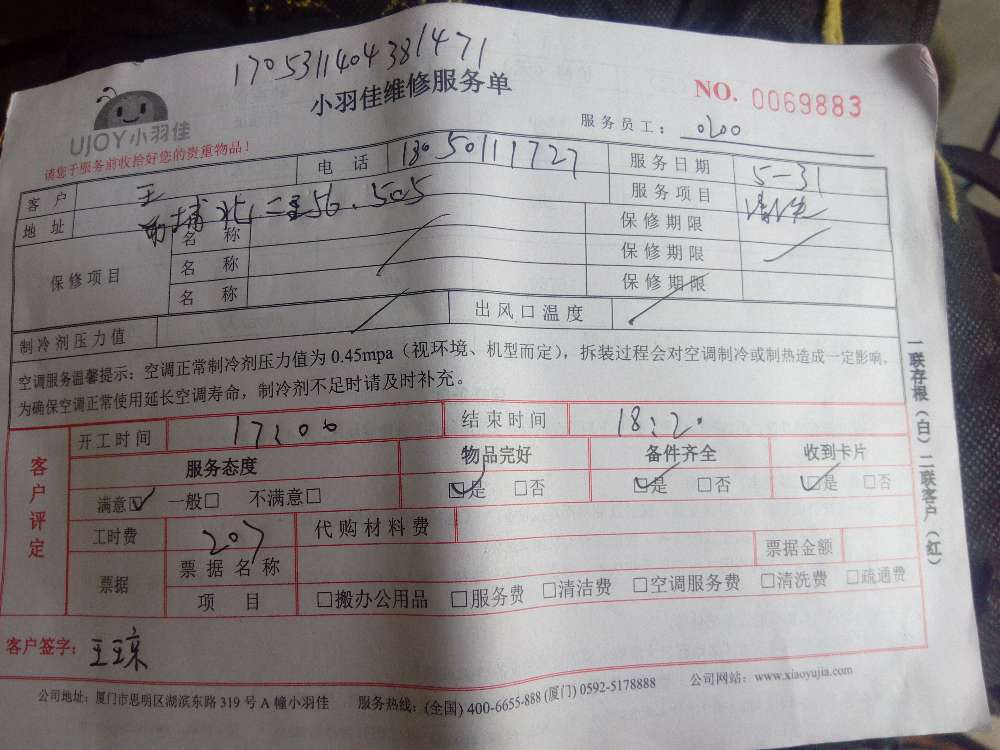 170531140438​1471
小羽佳维修服务单
NO. 0069883
UJOY小羽佳
服务员工： 0200
请您于服务前收拾好您的贵重物品！
客 户 王 电 话 18050111727 服务日期 5-31
地 址 埔北二里56.505 服务项目 清洗
保修项目 名 称 保修期限
名 称 保修期限
名 称 保修期限
制冷剂压力值 出风口温度
空调服务温馨提示：空调正常制冷剂压力值为 0.45mpa（视环境、机型而定），拆装过程会对空调制冷或制热造成一定影响，
为确保空调正常使用延长空调寿命，制冷剂不足时请及时补充。
客户评定
开工时间 17:00 结束时间 18:20
服务态度 物品完好 备件齐全 收到卡片
满意☑ 一般□ 不满意□ ☑是 □否 ☑是 □否 ☑是 □否
工时费 207 代购材料费
票据 票据名称 票据金额
项 目 □搬办公用品 □服务费 □清洁费 □空调服务费 □清洗费 □疏通费
客户签字：王琼
公司地址：厦门市思明区湖滨东路 319 号 A 幢小羽佳 服务热线：(全国) 400-6655-888 (厦门) 0592-5178888 公司网站：www.xiaoyujia.com
一联存根（白）二联客户（红）